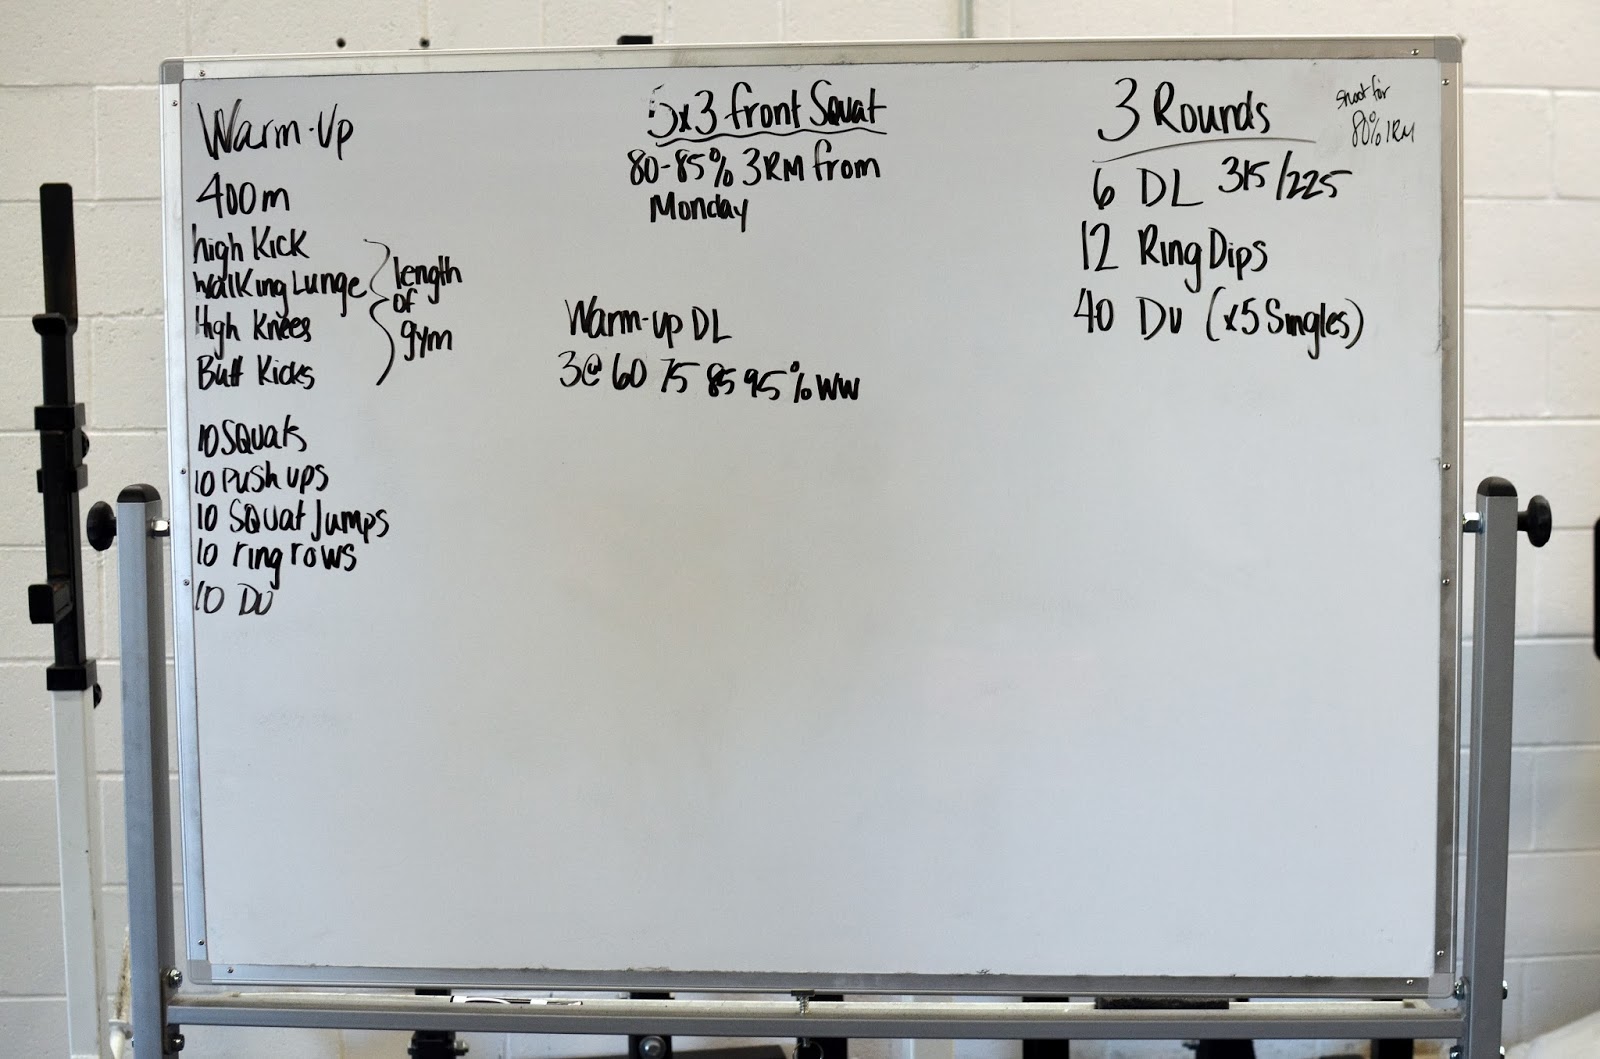 Warm-Up
400m
high Kick
Walking Lunge
High Knees
Butt Kicks
length
of
gym
10 Squats
10 Push ups
10 Squat Jumps
10 ring rows
10 DU
5x3 front Squat
80-85% 3RM from
Monday
Warm-up DL
3@ 60 75 85 95% WW
3 Rounds
shoot for
80% 1RM
6 DL 315/225
12 Ring Dips
40 DU (x5 Singles)